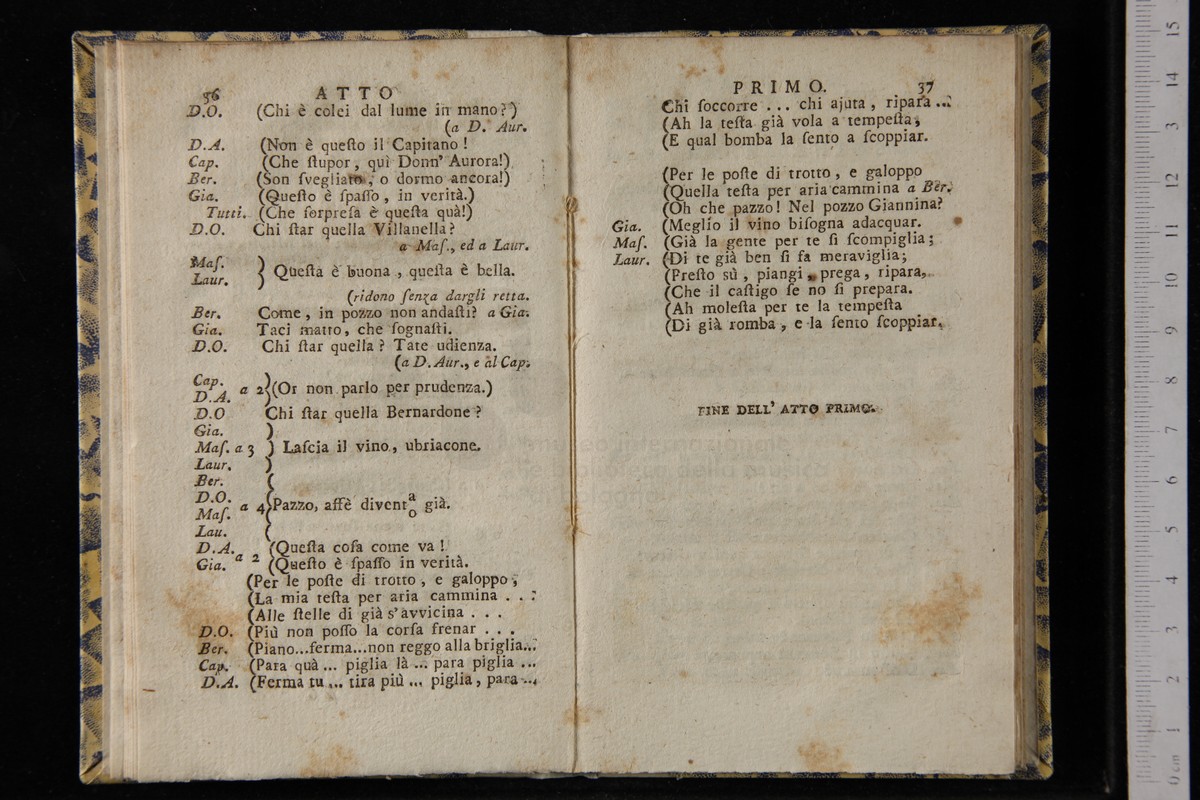 36 ATTO
D.O. (Chi è colei dal lume in mano?)
(a D. Aur.
D.A. (Non è queſto il Capitano!
Cap. (Che ſtupor, qui Donn' Aurora!)
Ber. (Son ſvegliato, o dormo ancora!)
Gia. (Queſto è ſpaſſo, in verità.)
Tutti. (Che ſorpreſa è queſta quà!)
D.O. Chi ſtar quella Villanella?
a Maſ., ed a Laur.
Maſ.
Laur. } Queſta è buona, queſta è bella.
(ridono ſenza dargli retta.
Ber. Come, in pozzo non andaſti? a Gia.
Gia. Taci matto, che ſognaſti.
D.O. Chi ſtar quella? Tate udienza.
(a D. Aur., e al Cap.
Cap.
D.A. a 2 (Or non parlo per prudenza.)
D.O Chi ſtar quella Bernardone?
Gia. )
Maſ. a 3 ) Laſcia il vino, ubriacone.
Laur. )
Ber. (
D.O.
Maſ. a 4 Pazzo, affè divent a o già.
Lau. (
D.A. a 2 (Queſta coſa come va!
Gia. (Queſto è ſpaſſo in verità.
(Per le poſte di trotto, e galoppo,
(La mia teſta per aria cammina . . .
(Alle ſtelle di già s'avvicina . . .
D.O. (Più non poſſo la corſa frenar . . .
Ber. (Piano...ferma...non reggo alla briglia...
Cap. (Para quà ... piglia là ... para piglia ...
D.A. (Ferma tu ... tira più ... piglia, para ...
PRIMO. 37
Chi ſoccorre . . . chi ajuta, ripara ...
(Ah la teſta già vola a tempeſta,
(E qual bomba la ſento a ſcoppiar.
(Per le poſte di trotto, e galoppo
(Quella teſta per aria cammina a Ber.
(Oh che pazzo! Nel pozzo Giannina?
Gia. (Meglio il vino biſogna adacquar.
Maſ. (Già la gente per te ſi ſcompiglia;
Laur. (Di te già ben ſi fa meraviglia;
(Preſto sù, piangi, prega, ripara,
(Che il caſtigo ſe no ſi prepara.
(Ah moleſta per te la tempeſta
(Di già romba, e la ſento ſcoppiar.
FINE DELL' ATTO PRIMO.
museo internazionale
e biblioteca della musica
di bologna
0 cm 1 2 3 4 5 6 7 8 9 10 11 12 13 14 15